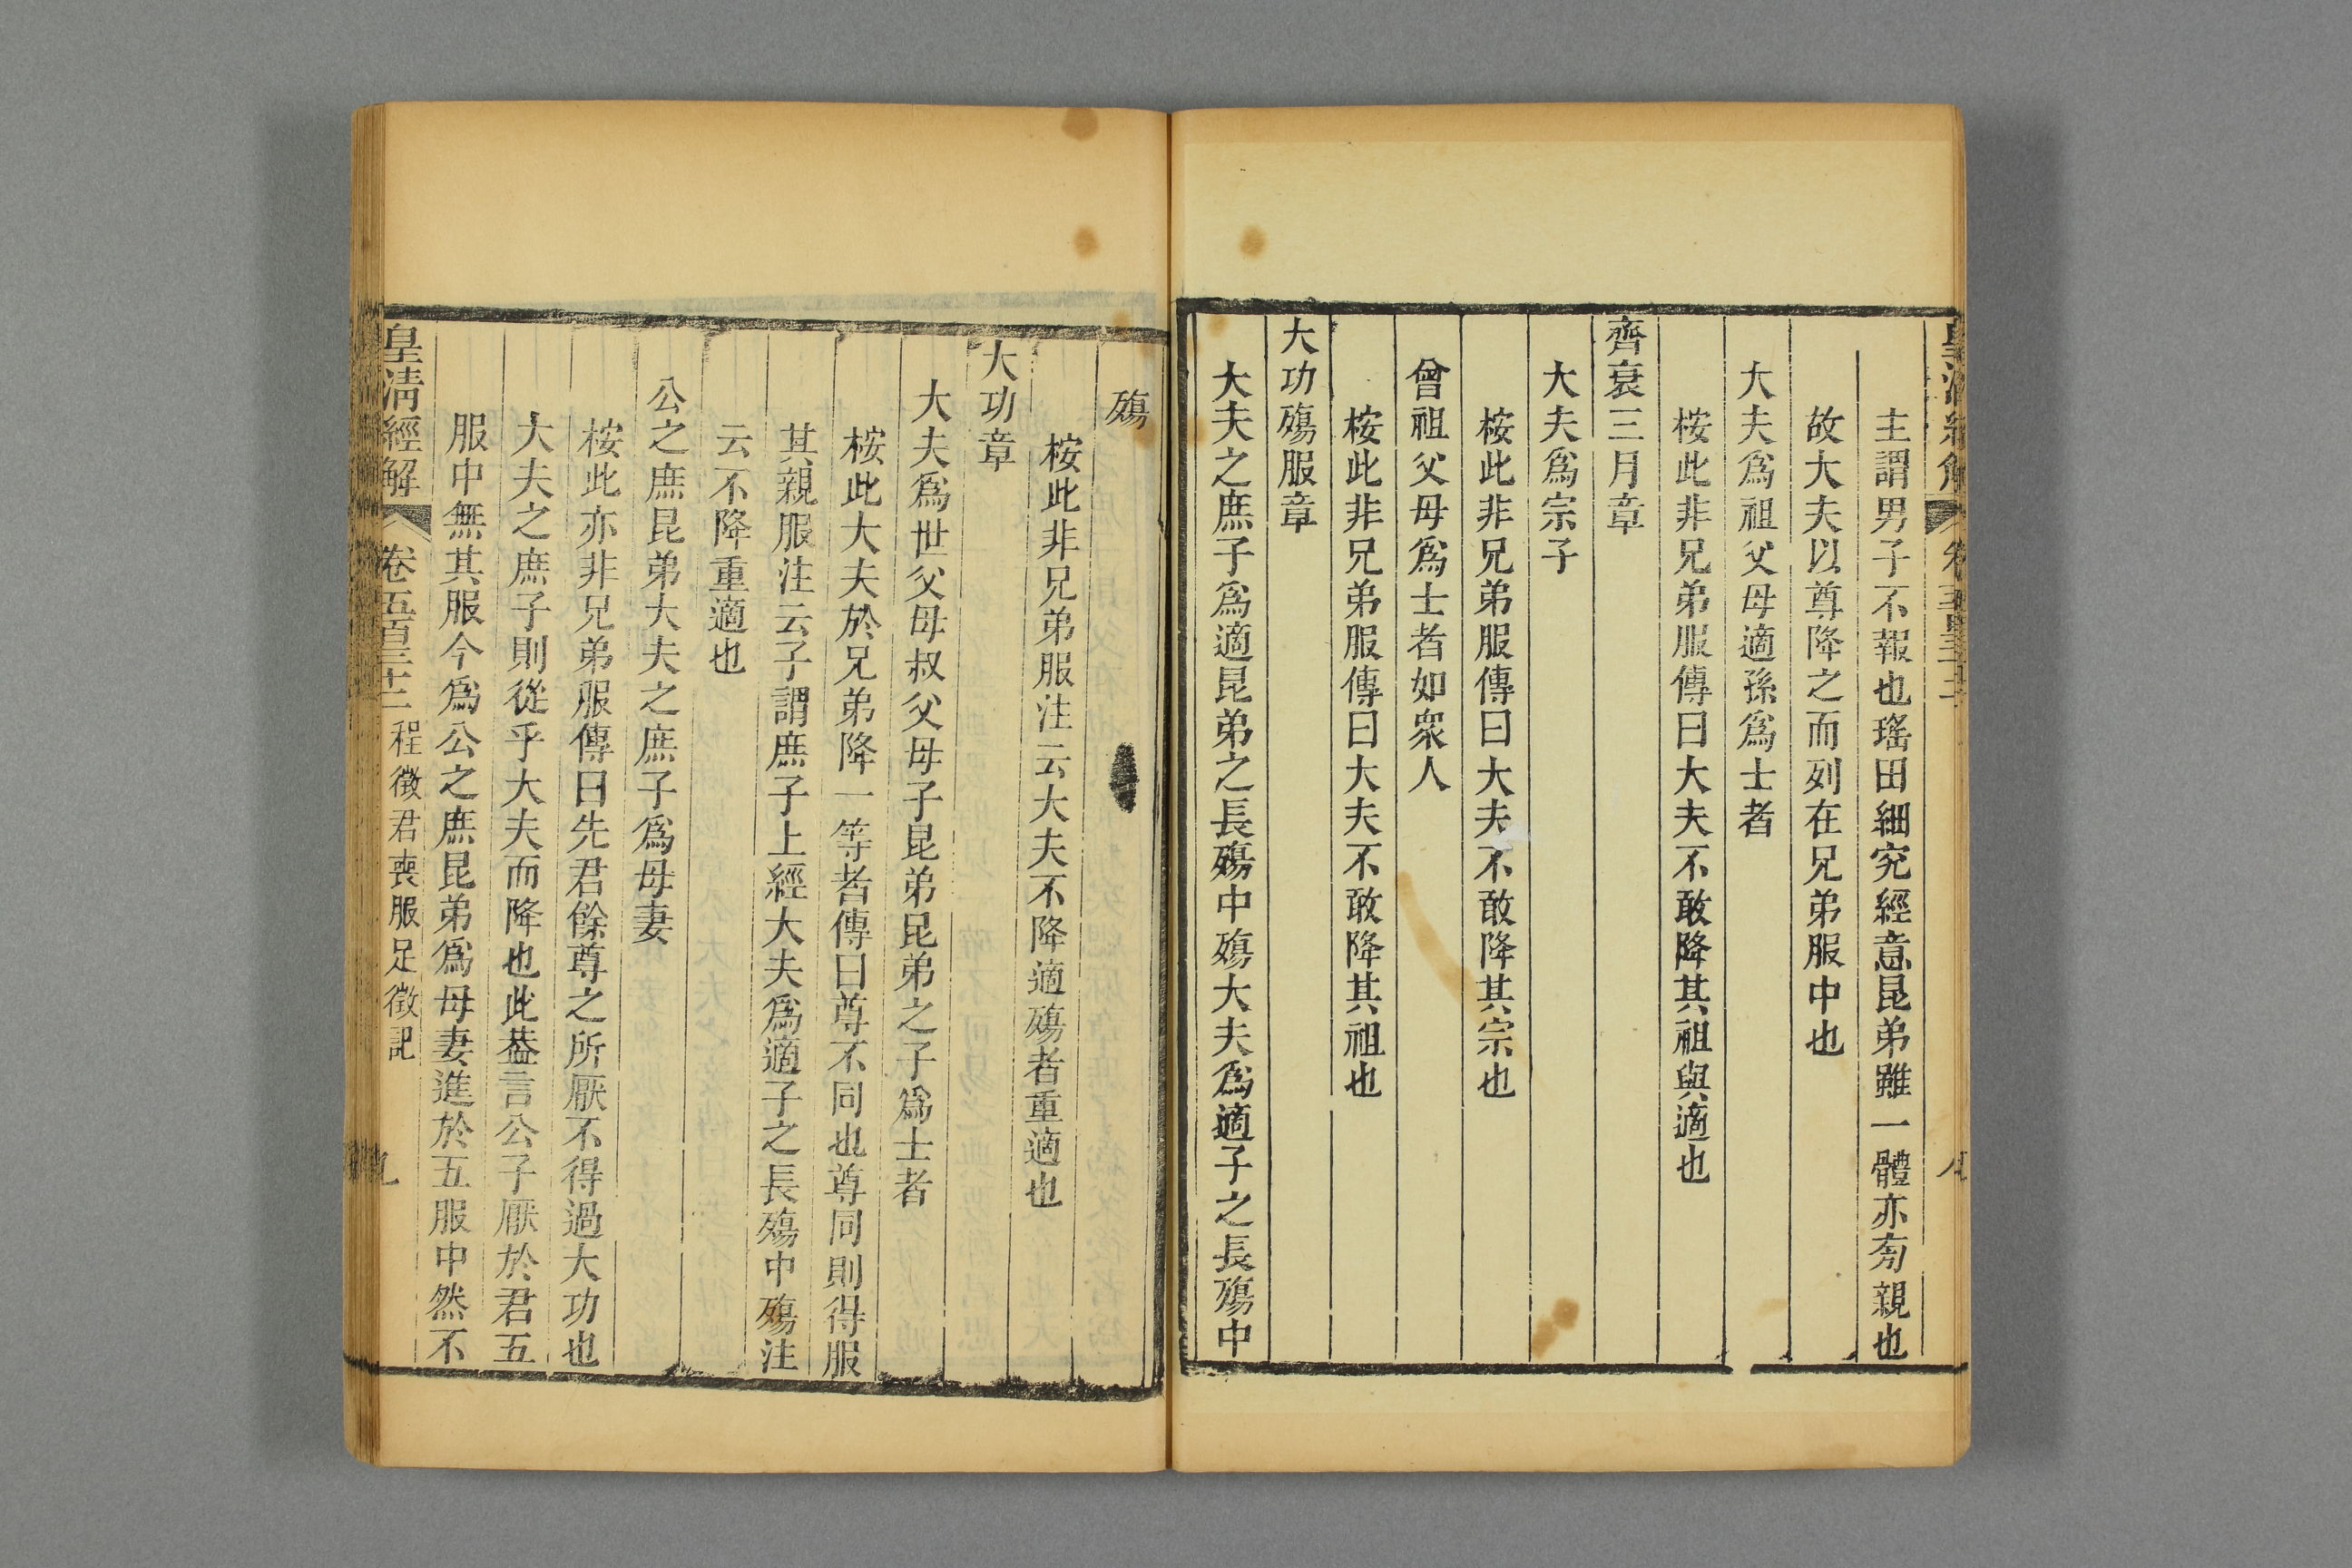 主謂男子不報也瑤田細究經意昆弟雖一體亦旁親也
故大夫以尊降之而列在兄弟服中也
大夫爲祖父母適孫爲士者
桉此非兄弟服傳曰大夫不敢降其祖與適也
齊衰三月章
大夫爲宗子
桉此非兄弟服傳曰大夫不敢降其宗也
曾祖父母爲士者如衆人
桉此非兄弟服傳曰大夫不敢降其祖也
大功殤服章
大夫之庶子爲適昆弟之長殤中殤大夫爲適子之長殤中
殤
桉此非兄弟服注云大夫不降適殤者重適也
大功章
大夫爲世父母叔父母子昆弟昆弟之子爲士者
桉此大夫於兄弟降一等者傳曰尊不同也尊同則得服
其親服注云子謂庶子上經大夫爲適子之長殤中殤注
云不降重適也
公之庶昆弟大夫之庶子爲母妻
桉此亦非兄弟服傳曰先君餘尊之所厭不得過大功也
大夫之庶子則從乎大夫而降也此葢言公子厭於君五
服中無其服今爲公之庶昆弟爲母妻進於五服中然不
皇清經解 卷五百三十二 程徵君喪服足徵記 九